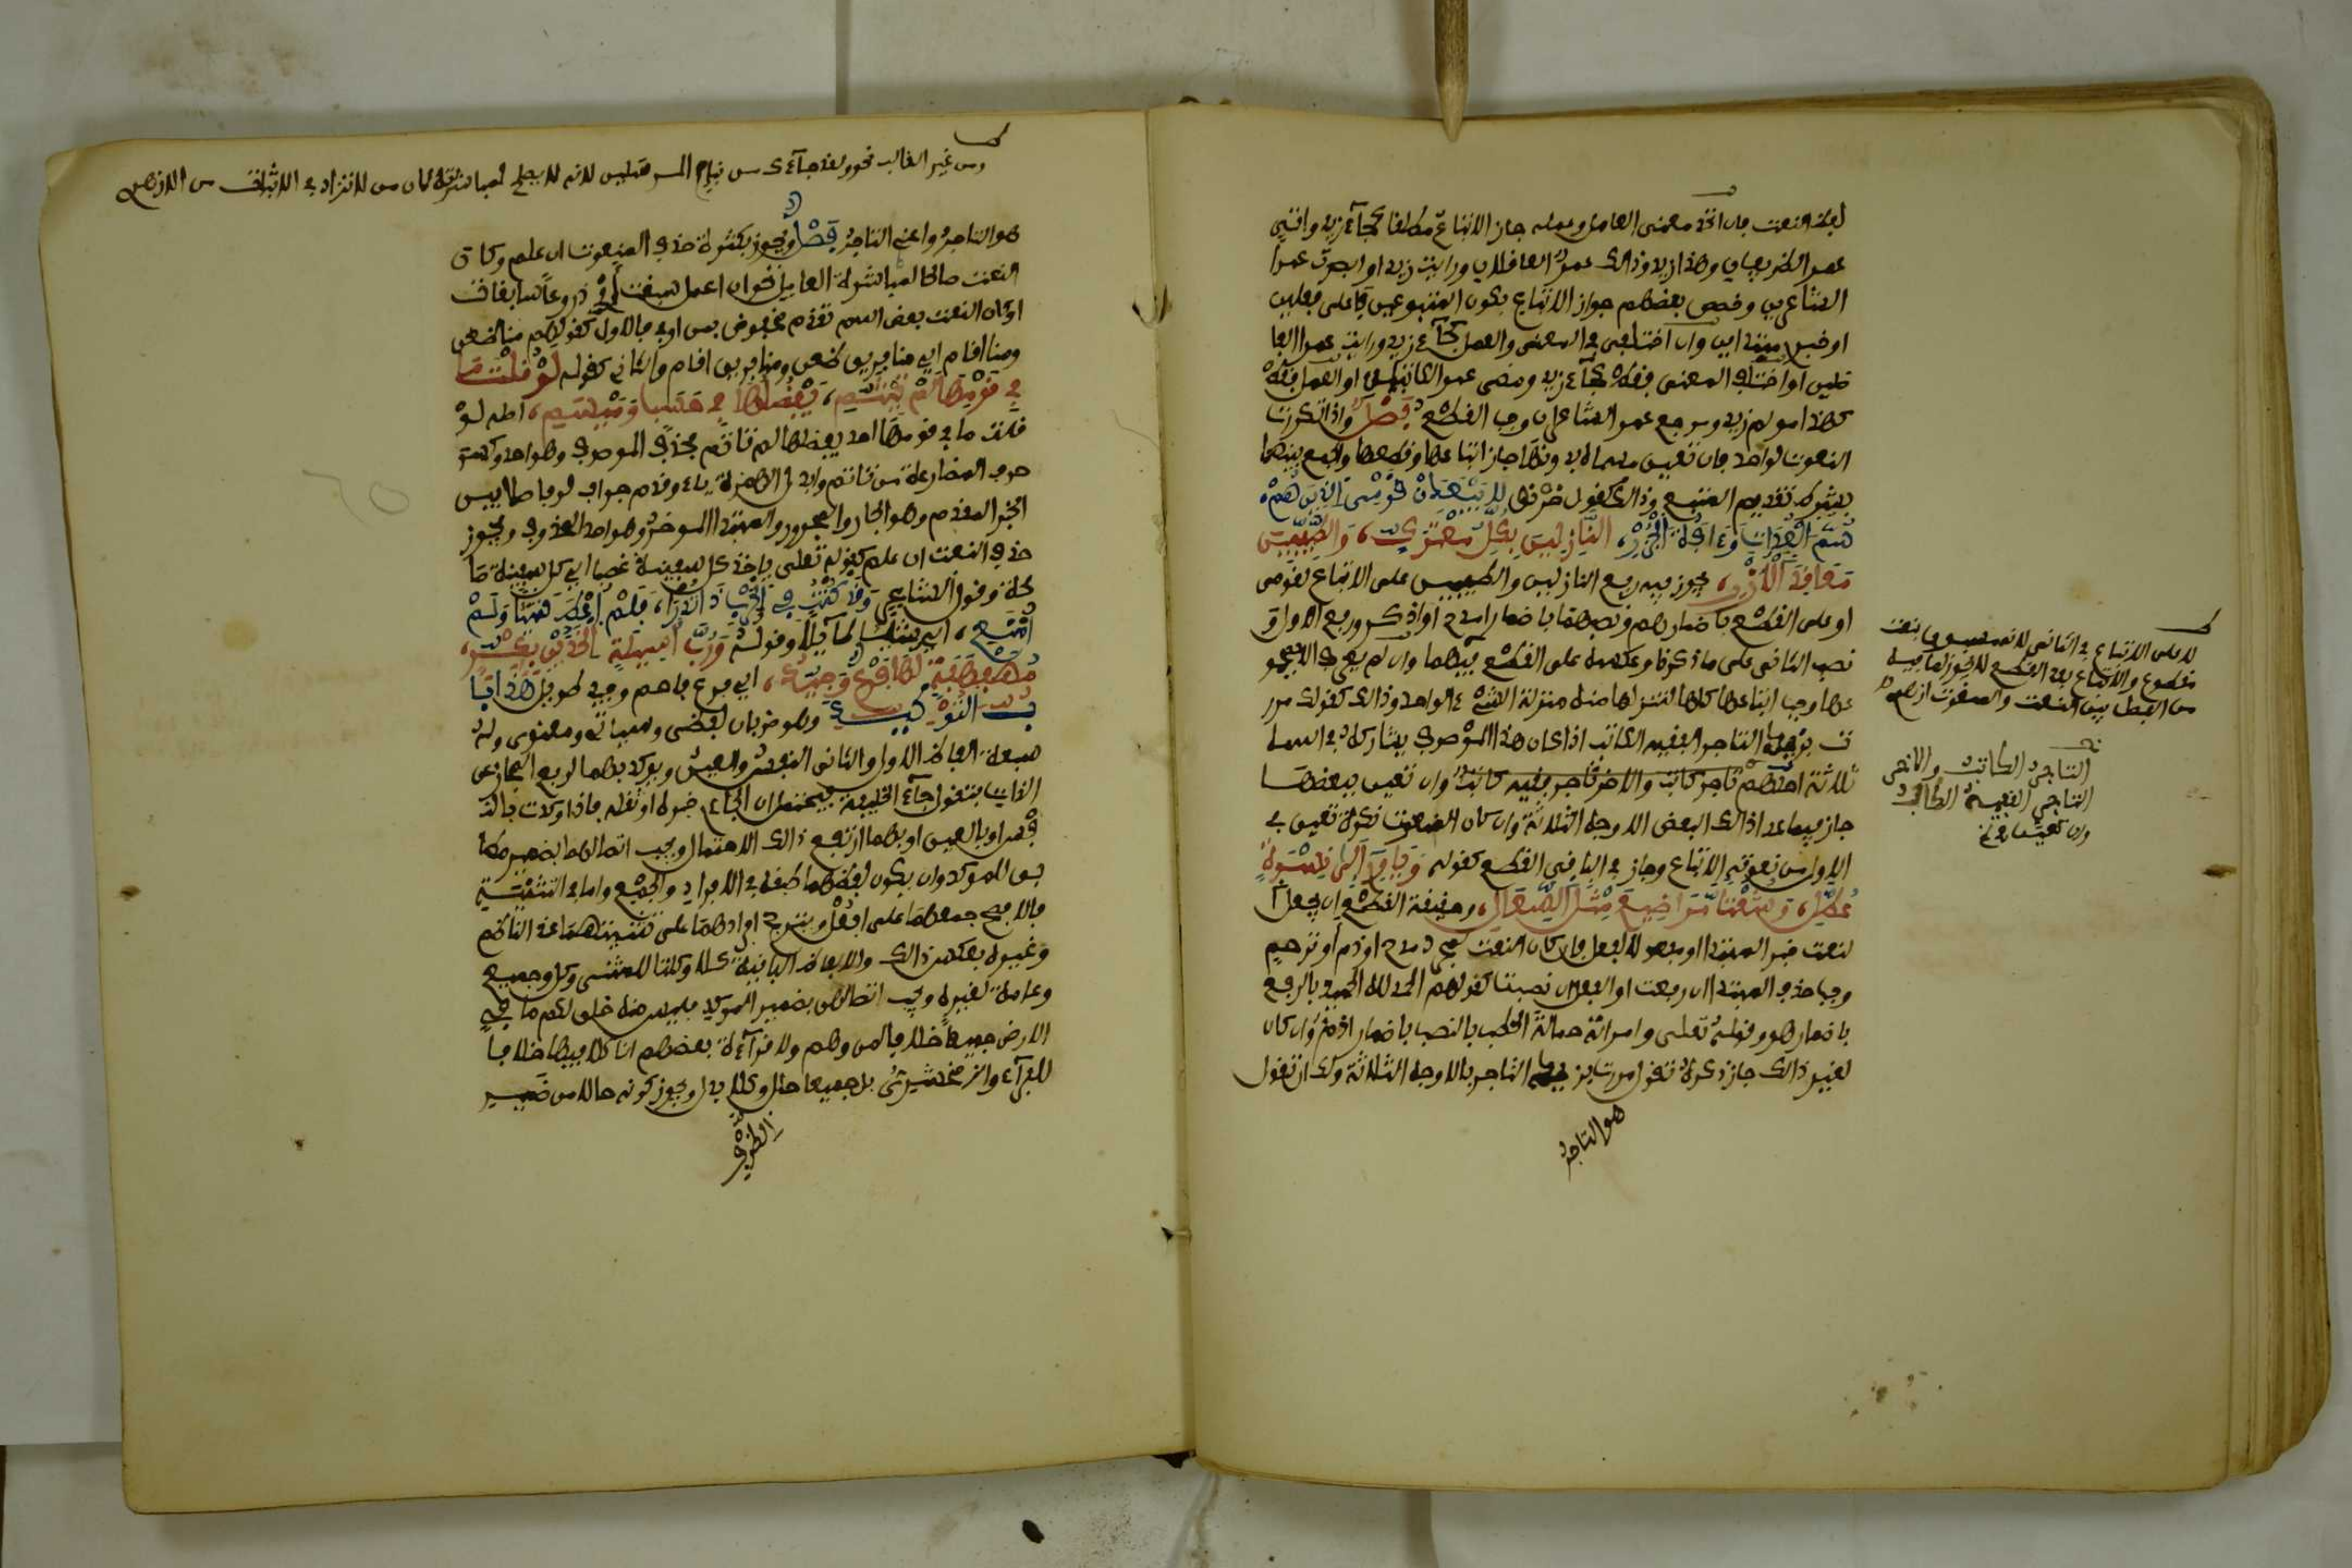 لفظ النعت فان اتحد معنى العامل وعمله جاز الاتباع مطلقا كجاء زيد واتى
عمرو الظريفان وهذا زيد وذاك عمرو العاقلان ورايت زيدا وابصرت عمرا
الشاعرين وخص بعضهم جواز الاتباع بكون المتبوعين فاعلي فعلين
او خبري مبتداين وان اختلفا في المعنى والعمل كجاء زيد ورايت عمرا الفا
ضلين او اختلف المعنى فقط كجاء زيد ومضى عمرو الكاتبان او العمل فقط
كهذا مولم زيد وموجع عمرا الشاعران وجب القطع فصل واذا تكررت
النعوت لواحد فان تعين مسماه بدونها جاز اتباعها وقطعها والجمع بينهما
بشرط تقديم المتبع وذلك كقول خرنق لا يبعدن قومي الذين هم
سم العداة وءافة الجزر، النازلين بكل معترك، والطيبين
معاقد الازر، يجوز فيه رفع النازلين والطيبين على الاتباع لقومي
او على القطع باضمار هم ونصبهما باضمار امدح او اذكر ورفع الاول و
نصب الثاني على ما ذكرنا وعكسه على القطع فيهما وان لم يعرف الا بمجمو
عها وجب اتباعها كلها لتنزلها منه منزلة الشيء الواحد وذلك كقولك مرر
ت بزيد التاجر الفقيه الكاتب اذا كان هذا الموصوف يشاركه في اسمه
ثلاثة احدهم تاجر كاتب والاخر تاجر فقيه كاتب وان تعين ببعضها
جاز فيما عدا ذلك البعض الاوجه الثلاثة وان كان المنعوت نكرة تعين في
الاول من نعوته الاتباع وجاز في الباقي القطع كقوله وياوي الى نسوة
عطل، وشعثا مراضيع مثل السعالي، وحقيقة القطع ان يجعل ا
لنعت خبر المبتدا او مفعولا لفعل فان كان النعت لمجرد مدح او ذم او ترحم
وجب حذف المبتدا ان رفعت او الفعل ان نصبت كقولهم الحمد لله الحميد بالرفع
باضمار هو وقوله تعلى وامراته حمالة الحطب بالنصب باضمار اذم وان كان
لغير ذلك جاز ذكره تقول مررت بزيد التاجر بالاوجه الثلاثة ولك ان تقول
هو التاجر
لا على الاتباع في الثاني لانه مسبوق بنعت
مقطوع والاتباع بعد القطع لا يجوز لما فيه
من الفصل بين النعت والمنعوت ازهري
التاجر الكاتب والاخر
التاجر الفقيه الكاتب
وان تعين ببعض
ومن غير الغالب نحو ولقد جاءك من نبإ المرسلين لانه لا يصلح لمباشرة لان من لا تزاد في الاثبات من الازهري
هو التاجر واعني التاجر فصل ويجوز بكثرة حذف المنعوت ان علم وكان
النعت صالحا لمباشرة العامل نحو ان اعمل سبغت اي دروعا سابغات
او كان النعت بعض اسم تقدم مخفوض بمن او في فالاول كقولهم منا ظعن
ومنا اقام اي منا فريق ظعن ومنا فريق اقام والثاني كقوله لو قلت ما
في قومها لم تيثم، يفضلها في حسب وميسم، اصله لو
قلت ما في قومها احد يفضلها لم تاثم فحذف الموصوف وهو احد وكسر
حرف المضارعة من تاثم وابدل الهمزة ياء وقدم جواب لو فاصلا بين
الخبر المقدم وهو الجار والمجرور والمبتدا الموخر وهو احد المحذوف ويجوز
حذف النعت ان علم كقوله تعلى ياخذ كل سفينة غصبا اي كل سفينة صا
لحة وقول الشاعر وقد كنت في الحرب ذا تدرإ، فلم اعط شيئا ولم
امنع، اي شيئا طايلا وقوله ورب اسيلة الخدين بكر،
مهفهفة لها فرع وجيد، اي فرع فاحم وجيد طويل هذا با
ب التوكيد وهو ضربان لفظي وسياتي ومعنوي وله
سبعة الفاظ الاول والثاني النفس والعين ويوكد بهما لرفع المجاز عن
الذات فتقول جاء الخليفة فيحتمل ان الجاءي خبره او ثقله فاذا اكدت بالن
فس او بالعين او بهما ارتفع ذلك الاحتمال ويجب اتصالهما بضمير مطا
بق للموكد وان يكون لفظهما طبقه في الافراد والجمع واما في التثنية
فالافصح جمعهما على افعل ويترجح افرادهما على تثنيتهما عند الناظم
وغيره بعكس ذلك والالفاظ الباقية كلا وكلتا للمثنى وكل وجميع
وعامة لغيره ويجب اتصالهن بضمير الموكد فليس منه خلق لكم ما في
الارض جميعا خلافا لمن وهم ولا قراءة بعضهم انا كلا فيها خلافا
للفراء والزمخشري بل جميعا حال وكلا بدل ويجوز كونه حالا من ضمير
الظرف